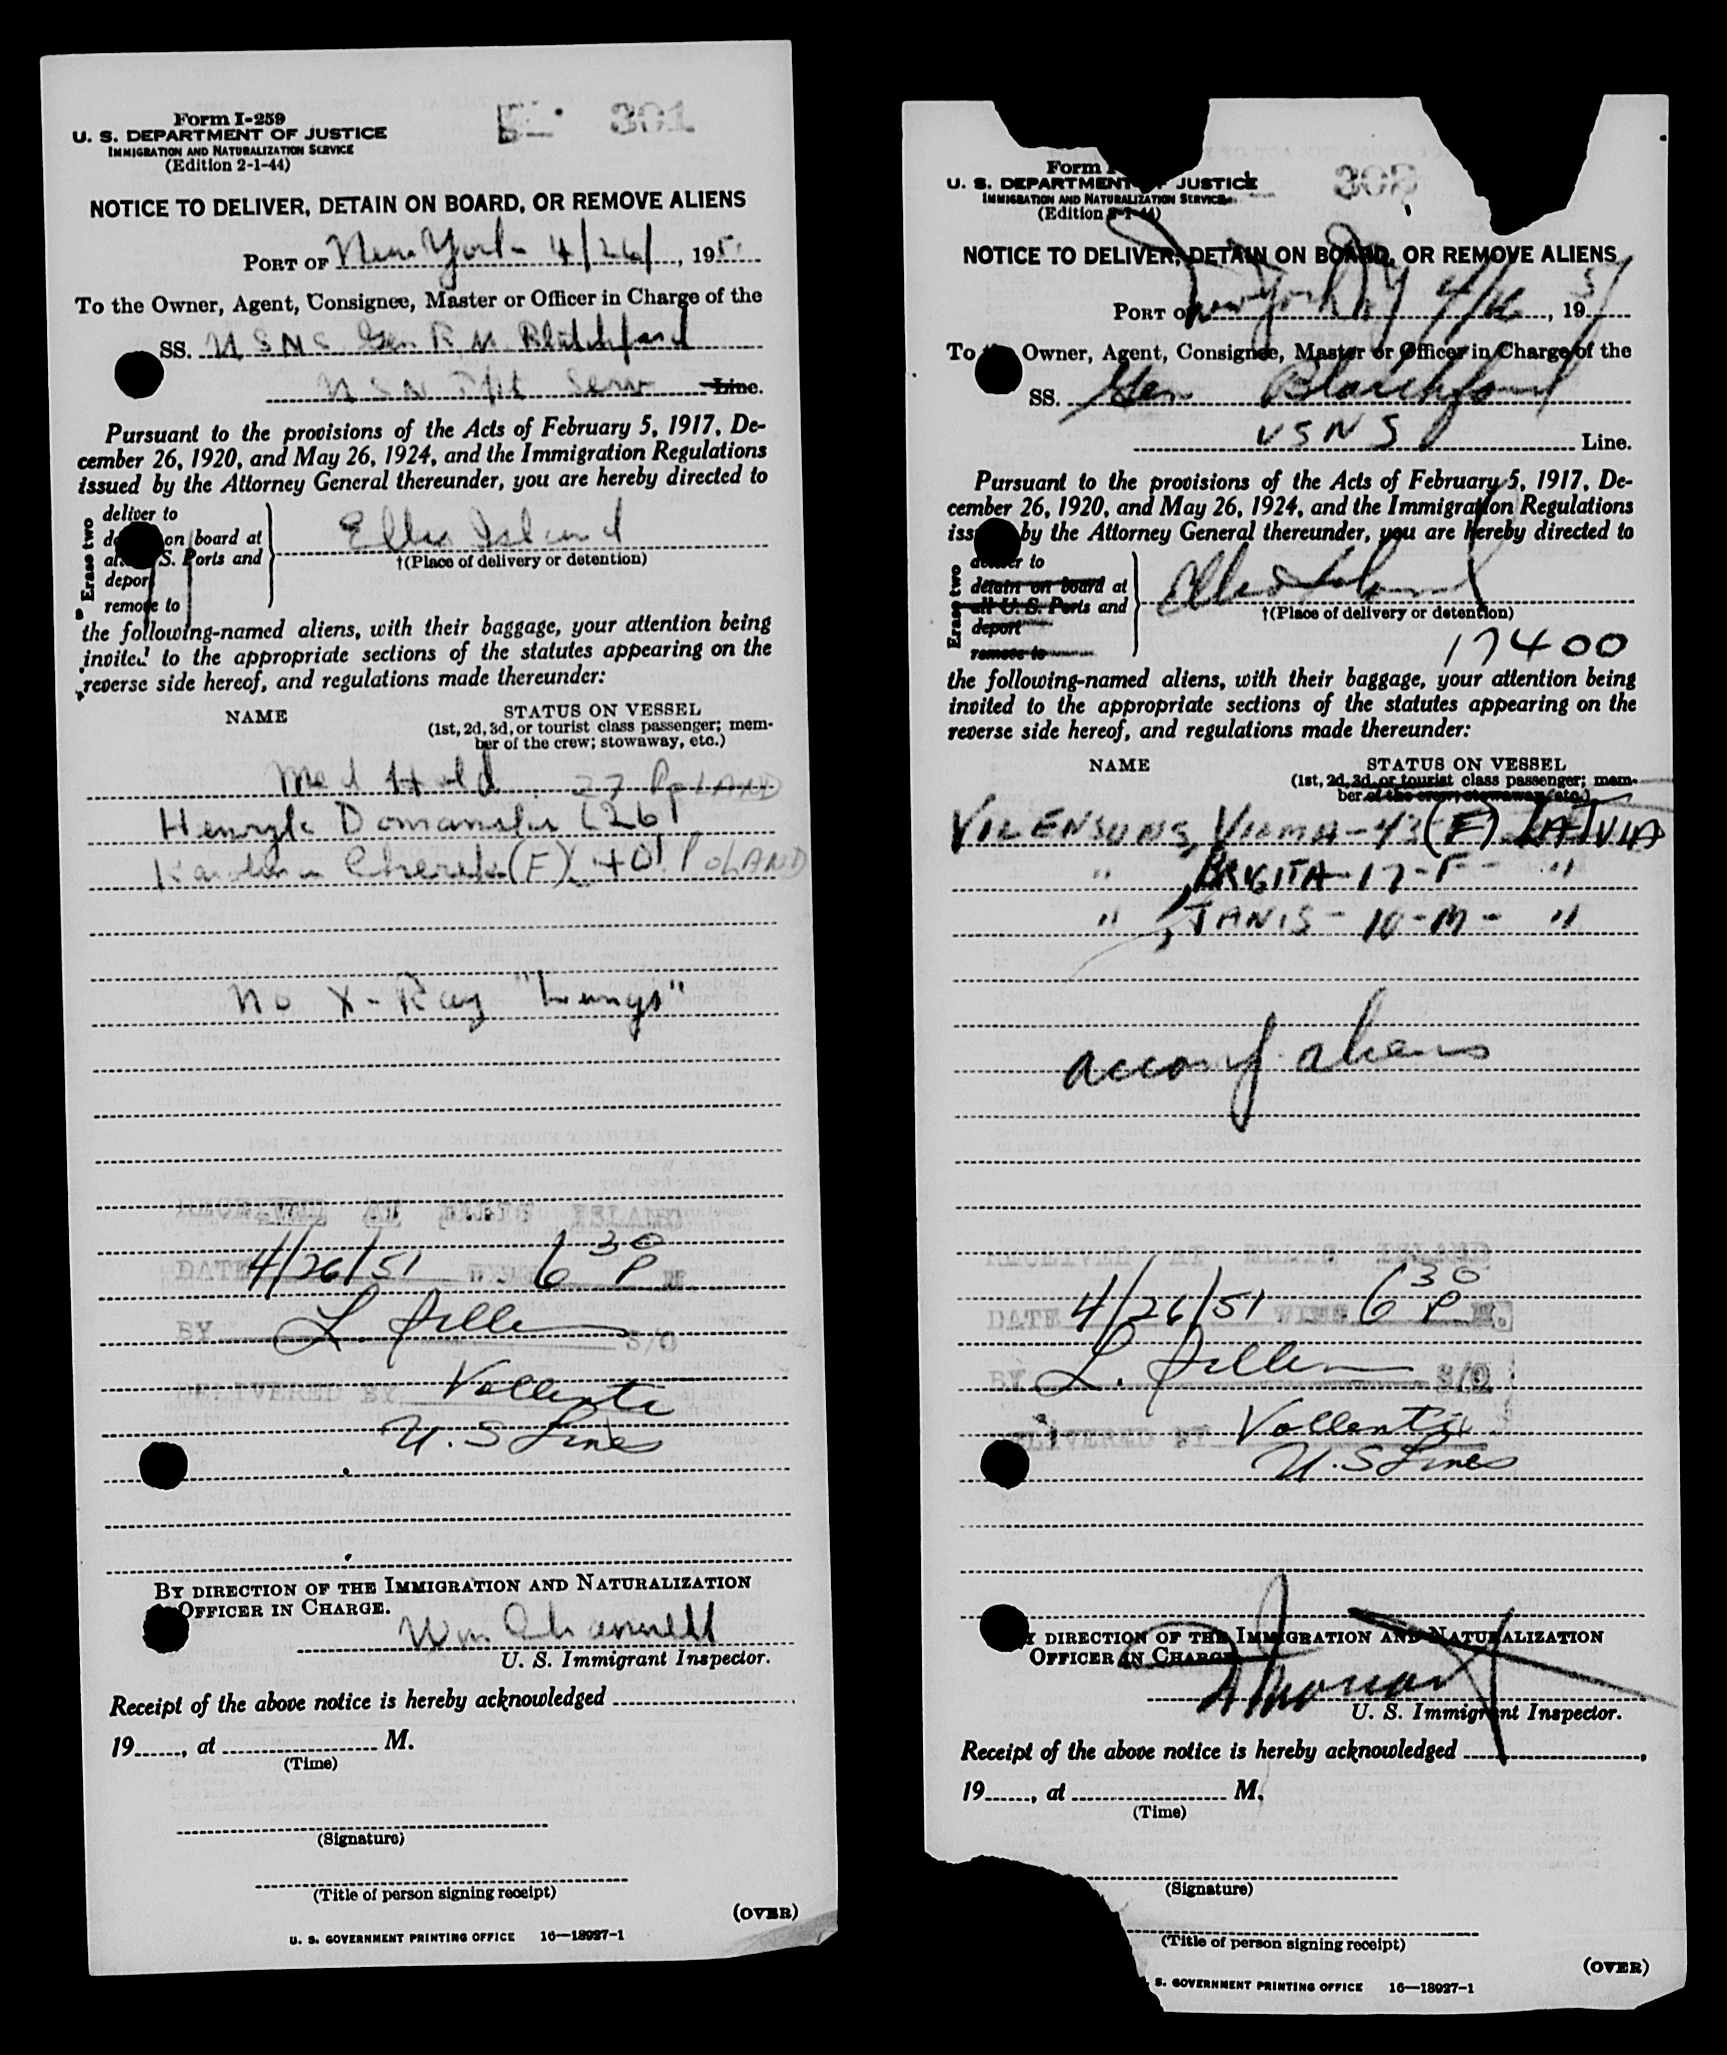 Form I-259
U. S. DEPARTMENT OF JUSTICE
IMMIGRATION AND NATURALIZATION SERVICE
(Edition 2-1-44)
301
NOTICE TO DELIVER, DETAIN ON BOARD, OR REMOVE ALIENS
PORT OF New York 4/26/, 195
To the Owner, Agent, Consignee, Master or Officer in Charge of the
SS. USNS Gen R M Blatchford
Line.
Pursuant to the provisions of the Acts of February 5, 1917, De-
cember 26, 1920, and May 26, 1924, and the Immigration Regulations
issued by the Attorney General thereunder, you are hereby directed to
Erase two
deliver to
on board at
S. Ports and
deport
remove to
Ellis Island
†(Place of delivery or detention)
the following-named aliens, with their baggage, your attention being
invited to the appropriate sections of the statutes appearing on the
reverse side hereof, and regulations made thereunder:
NAME
STATUS ON VESSEL
(1st, 2d, 3d, or tourist class passenger; mem-
ber of the crew; stowaway, etc.)
Med Hold 27 POLAND
Henryk Domanski (26)
(F) 40 POLAND
No X-Ray "Lungs"
RECEIVED AT ELLIS ISLAND
DATE 4/26/51 TIME 6 30 P M
BY L. S/O
DELIVERED BY Vallenti
U.S Lines
BY DIRECTION OF THE IMMIGRATION AND NATURALIZATION
OFFICER IN CHARGE.
Wm
U. S. Immigrant Inspector.
Receipt of the above notice is hereby acknowledged
19......, at .................... M.
(Time)
(Signature)
(Title of person signing receipt)
(OVER)
U. S. GOVERNMENT PRINTING OFFICE 16—18927-1
Form
U. S. DEPARTMENT OF JUSTICE
IMMIGRATION AND NATURALIZATION SERVICE
(Edition 2-1-44)
308
NOTICE TO DELIVER, DETAIN ON BOARD, OR REMOVE ALIENS
PORT OF New York NY 4/26, 1951
To Owner, Agent, Consignee, Master or Officer in Charge of the
SS. Gen Blatchford
USNS Line.
Pursuant to the provisions of the Acts of February 5, 1917, De-
cember 26, 1920, and May 26, 1924, and the Immigration Regulations
iss by the Attorney General thereunder, you are hereby directed to
Erase two
deliver to
detain on board at
all U. S. Ports and
deport
remove to
Ellis Island
†(Place of delivery or detention)
17400
the following-named aliens, with their baggage, your attention being
invited to the appropriate sections of the statutes appearing on the
reverse side hereof, and regulations made thereunder:
NAME
STATUS ON VESSEL
(1st, 2d, 3d, or tourist class passenger; mem-
ber of the crew; stowaway, etc.)
VILENSONS, VILMA - 43 (F) LATVIA
" , BRIGITA - 17 - F - "
" , JANIS - 10 - M - "
accomp. aliens
RECEIVED AT ELLIS ISLAND
DATE 4/26/51 TIME 6 30 P M.
BY L. S/O
DELIVERED BY Vallenti
U.S Lines
BY DIRECTION OF THE IMMIGRATION AND NATURALIZATION
OFFICER IN CHARGE
U. S. Immigrant Inspector.
Receipt of the above notice is hereby acknowledged
19......, at .................... M.
(Time)
(Signature)
(Title of person signing receipt)
(OVER)
S. GOVERNMENT PRINTING OFFICE 16—18927-1